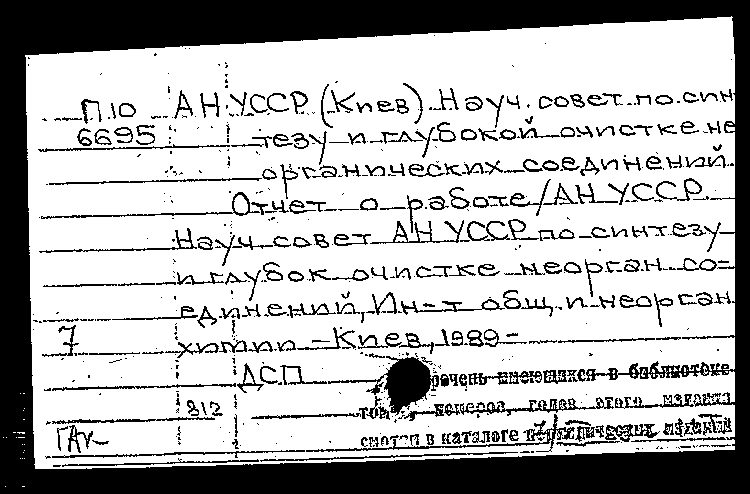 П10 АН УССР (Киев). Науч. совет по син-
6695 тезу и глубокой очистке не
органических соединений.
Отчет о работе / АН УССР.
Науч совет АН УССР по синтезу
и глубок очистке неорган со=
единений, Ин-т общ. и неорган
7 химии – Киев, 1989 –
ДСП
речень имеющихся в библиотеке
812 томов, номеров, годов этого издания
ГАК смотри в каталоге периодических изданий